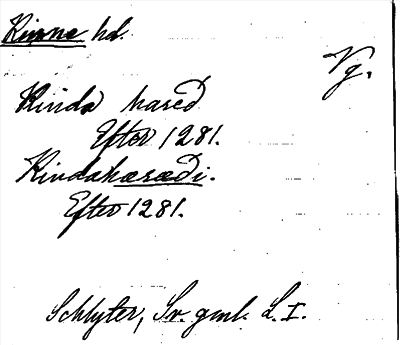 Kinne hd.
Vg.
Kinda hæred
Efter 1281.
Kindahæræði.
Efter 1281.
Schlyter, Sv. gml. L. I.